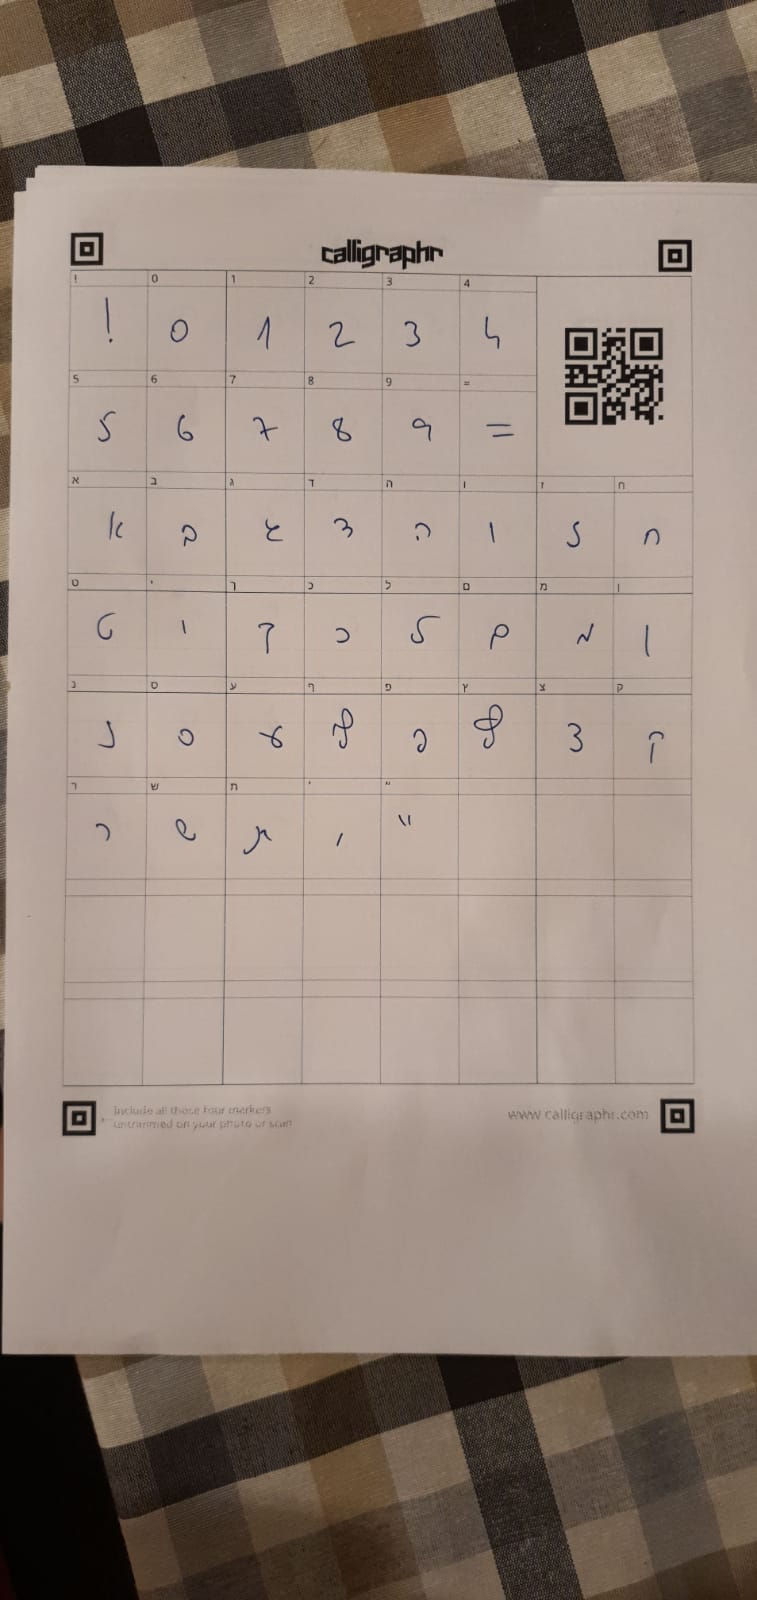 calligraphr
! 0 1 2 3 4
! 0 1 2 3 4
5 6 7 8 9 =
5 6 7 8 9 =
א ב ג ד ה ו ז ח
א ב ג ד ה ו ז ח
ט י ך כ ל ם מ ן
ט י ך כ ל ם מ ן
נ ס ע ף פ ץ צ ק
נ ס ע ף פ ץ צ ק
ר ש ת ' "
ר ש ת ' "
Include all those four markers
untrimmed on your photo or scan
www.calligraphr.com